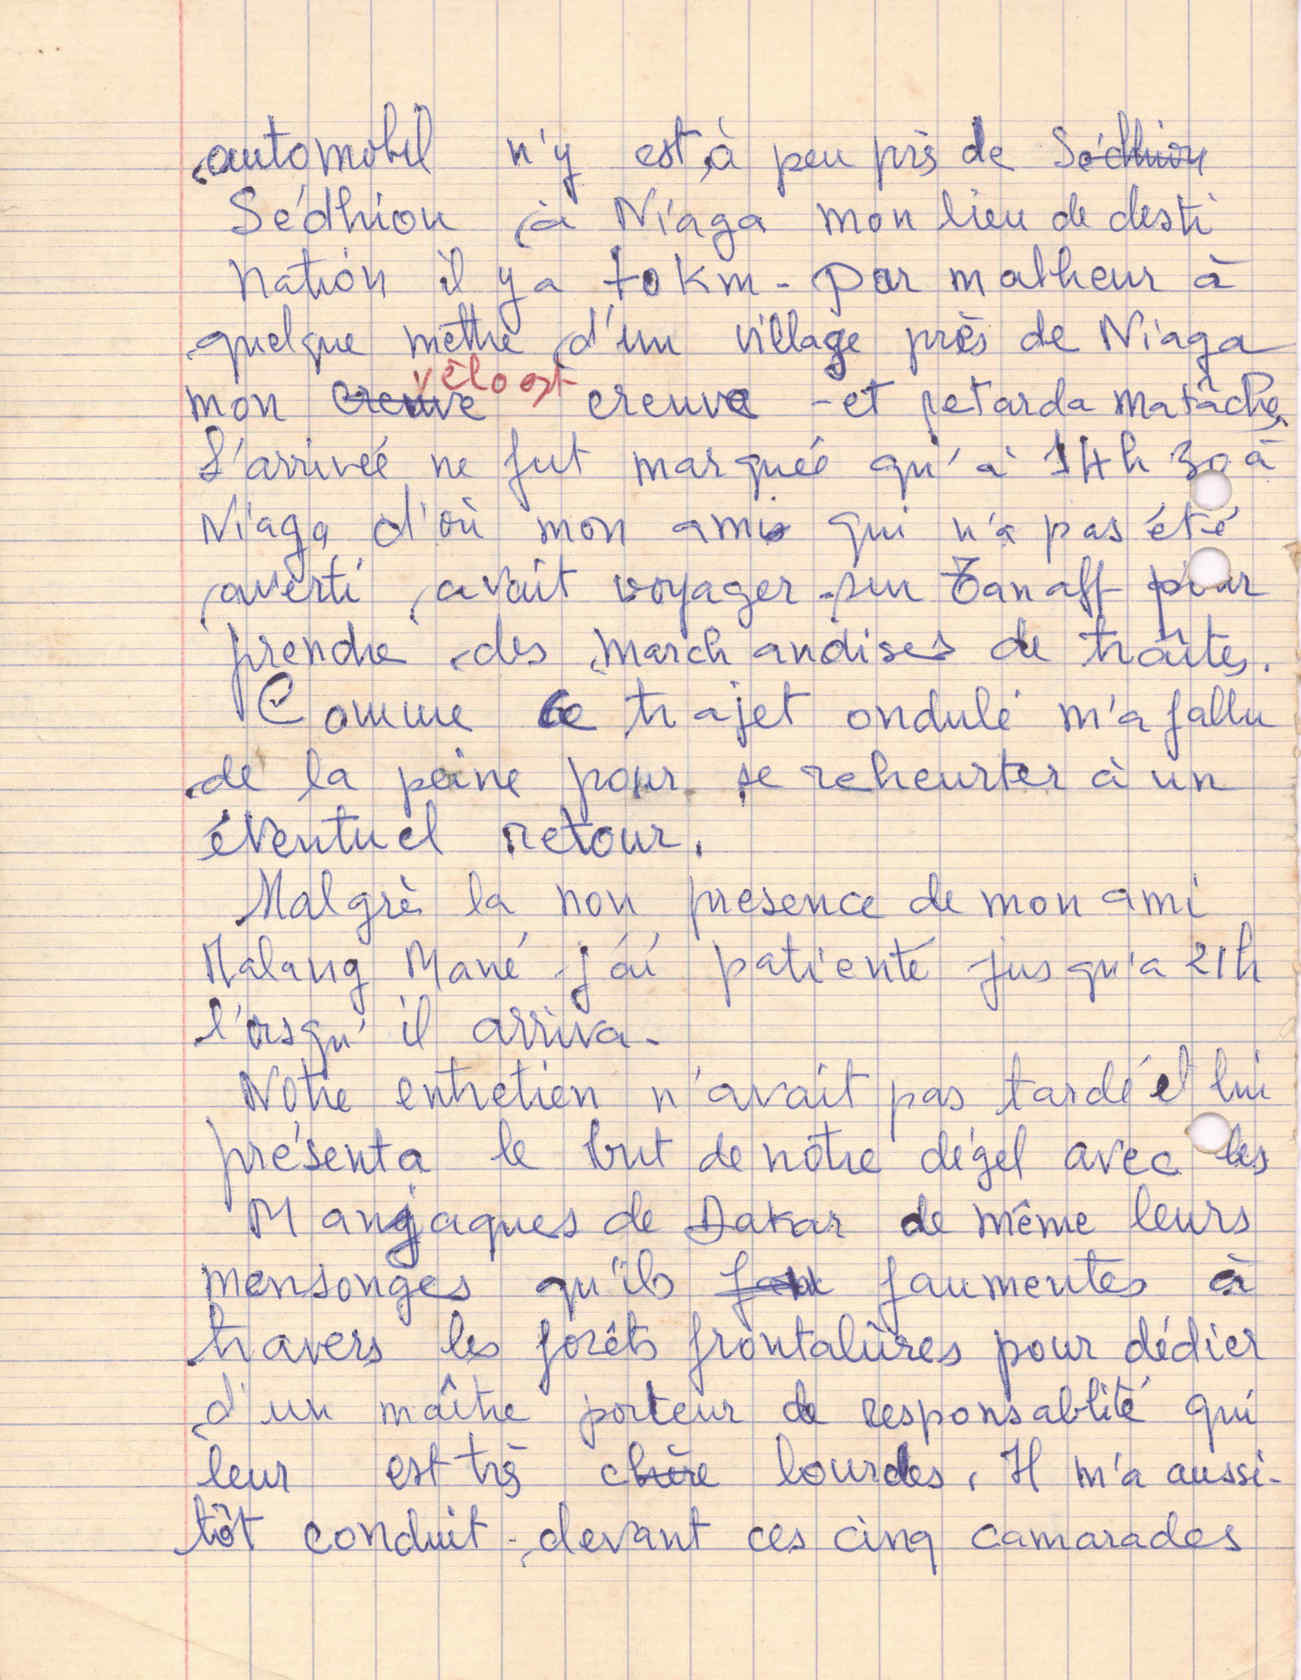 automobil n'y est à peu près de Sédhiou
Sédhiou à Niaga mon lieu de desti
nation il y a 70 km - Par malheur à
quelque mèttre d'un village près de Niaga
mon creuve vélo est creuve - et petarda matâche
L'arriveé ne fut marqueé qu'à 14h 30 à
Niaga d'où mon ami qui n'a pas été
averti avait voyager sur Tanaff pour
prendre des marchandises de traites.
Comme ce trajet ondulé m'a fallu
de la peine pour se reheurter à un
éventuel retour.
Malgrè la non presence de mon ami
Malang Mané j'ai patienté jusqu'a 21h
l'orsqu'il arriva -
Notre entretien n'avait pas tardé et lui
présenta le but de notre dégel avec les
Manjaques de Dakar de même leurs
mensonges qu'ils faumentes à
travers les forêts frontalières pour dédier
d'un maître porteur de responsablité qui
leur est trés chère lourdes, Il m'a aussi-
tôt conduit devant ces cinq camarades